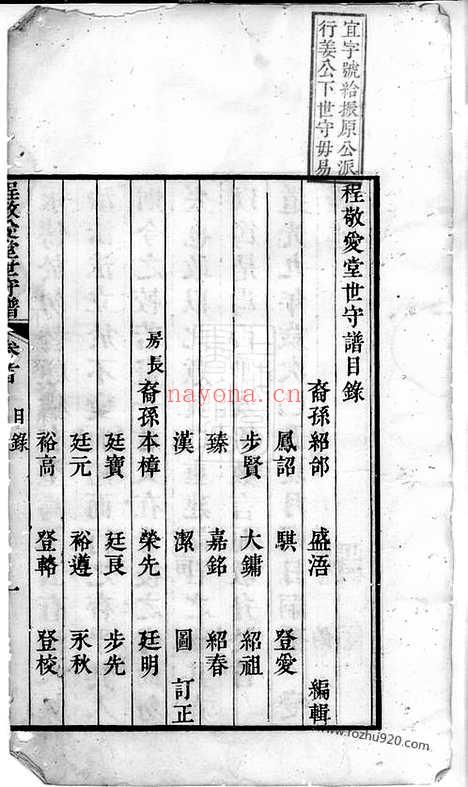 宜字號給振原公派
行姜公下世守毋易
程敬愛堂世守譜目錄
裔孫紹邰 盛浯 編輯
鳳詔 騏 登愛
步賢 大鏞 紹祖
臻 嘉銘 紹春
漢 潔 圖 訂正
房長裔孫本樟 榮先 廷明
廷寶 廷良 步先
廷元 裕遵 永秋
裕高 登輅 登校
程敬愛堂世守譜 卷首 目錄 一
nayona.cn
www.fozhu920.com